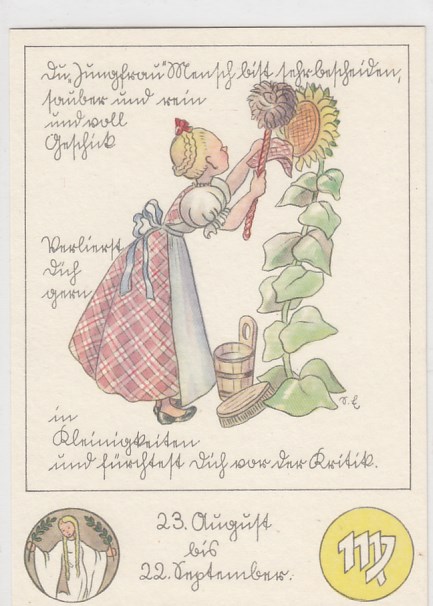 Du „Jungfrau" Mensch bist sehr bescheiden,
sauber und rein
und voll
Geschick
Verlierst
Dich
gern
in
Kleinigkeiten
und fürchtest Dich vor der Kritik.
S. E
23. August
bis
22. September.